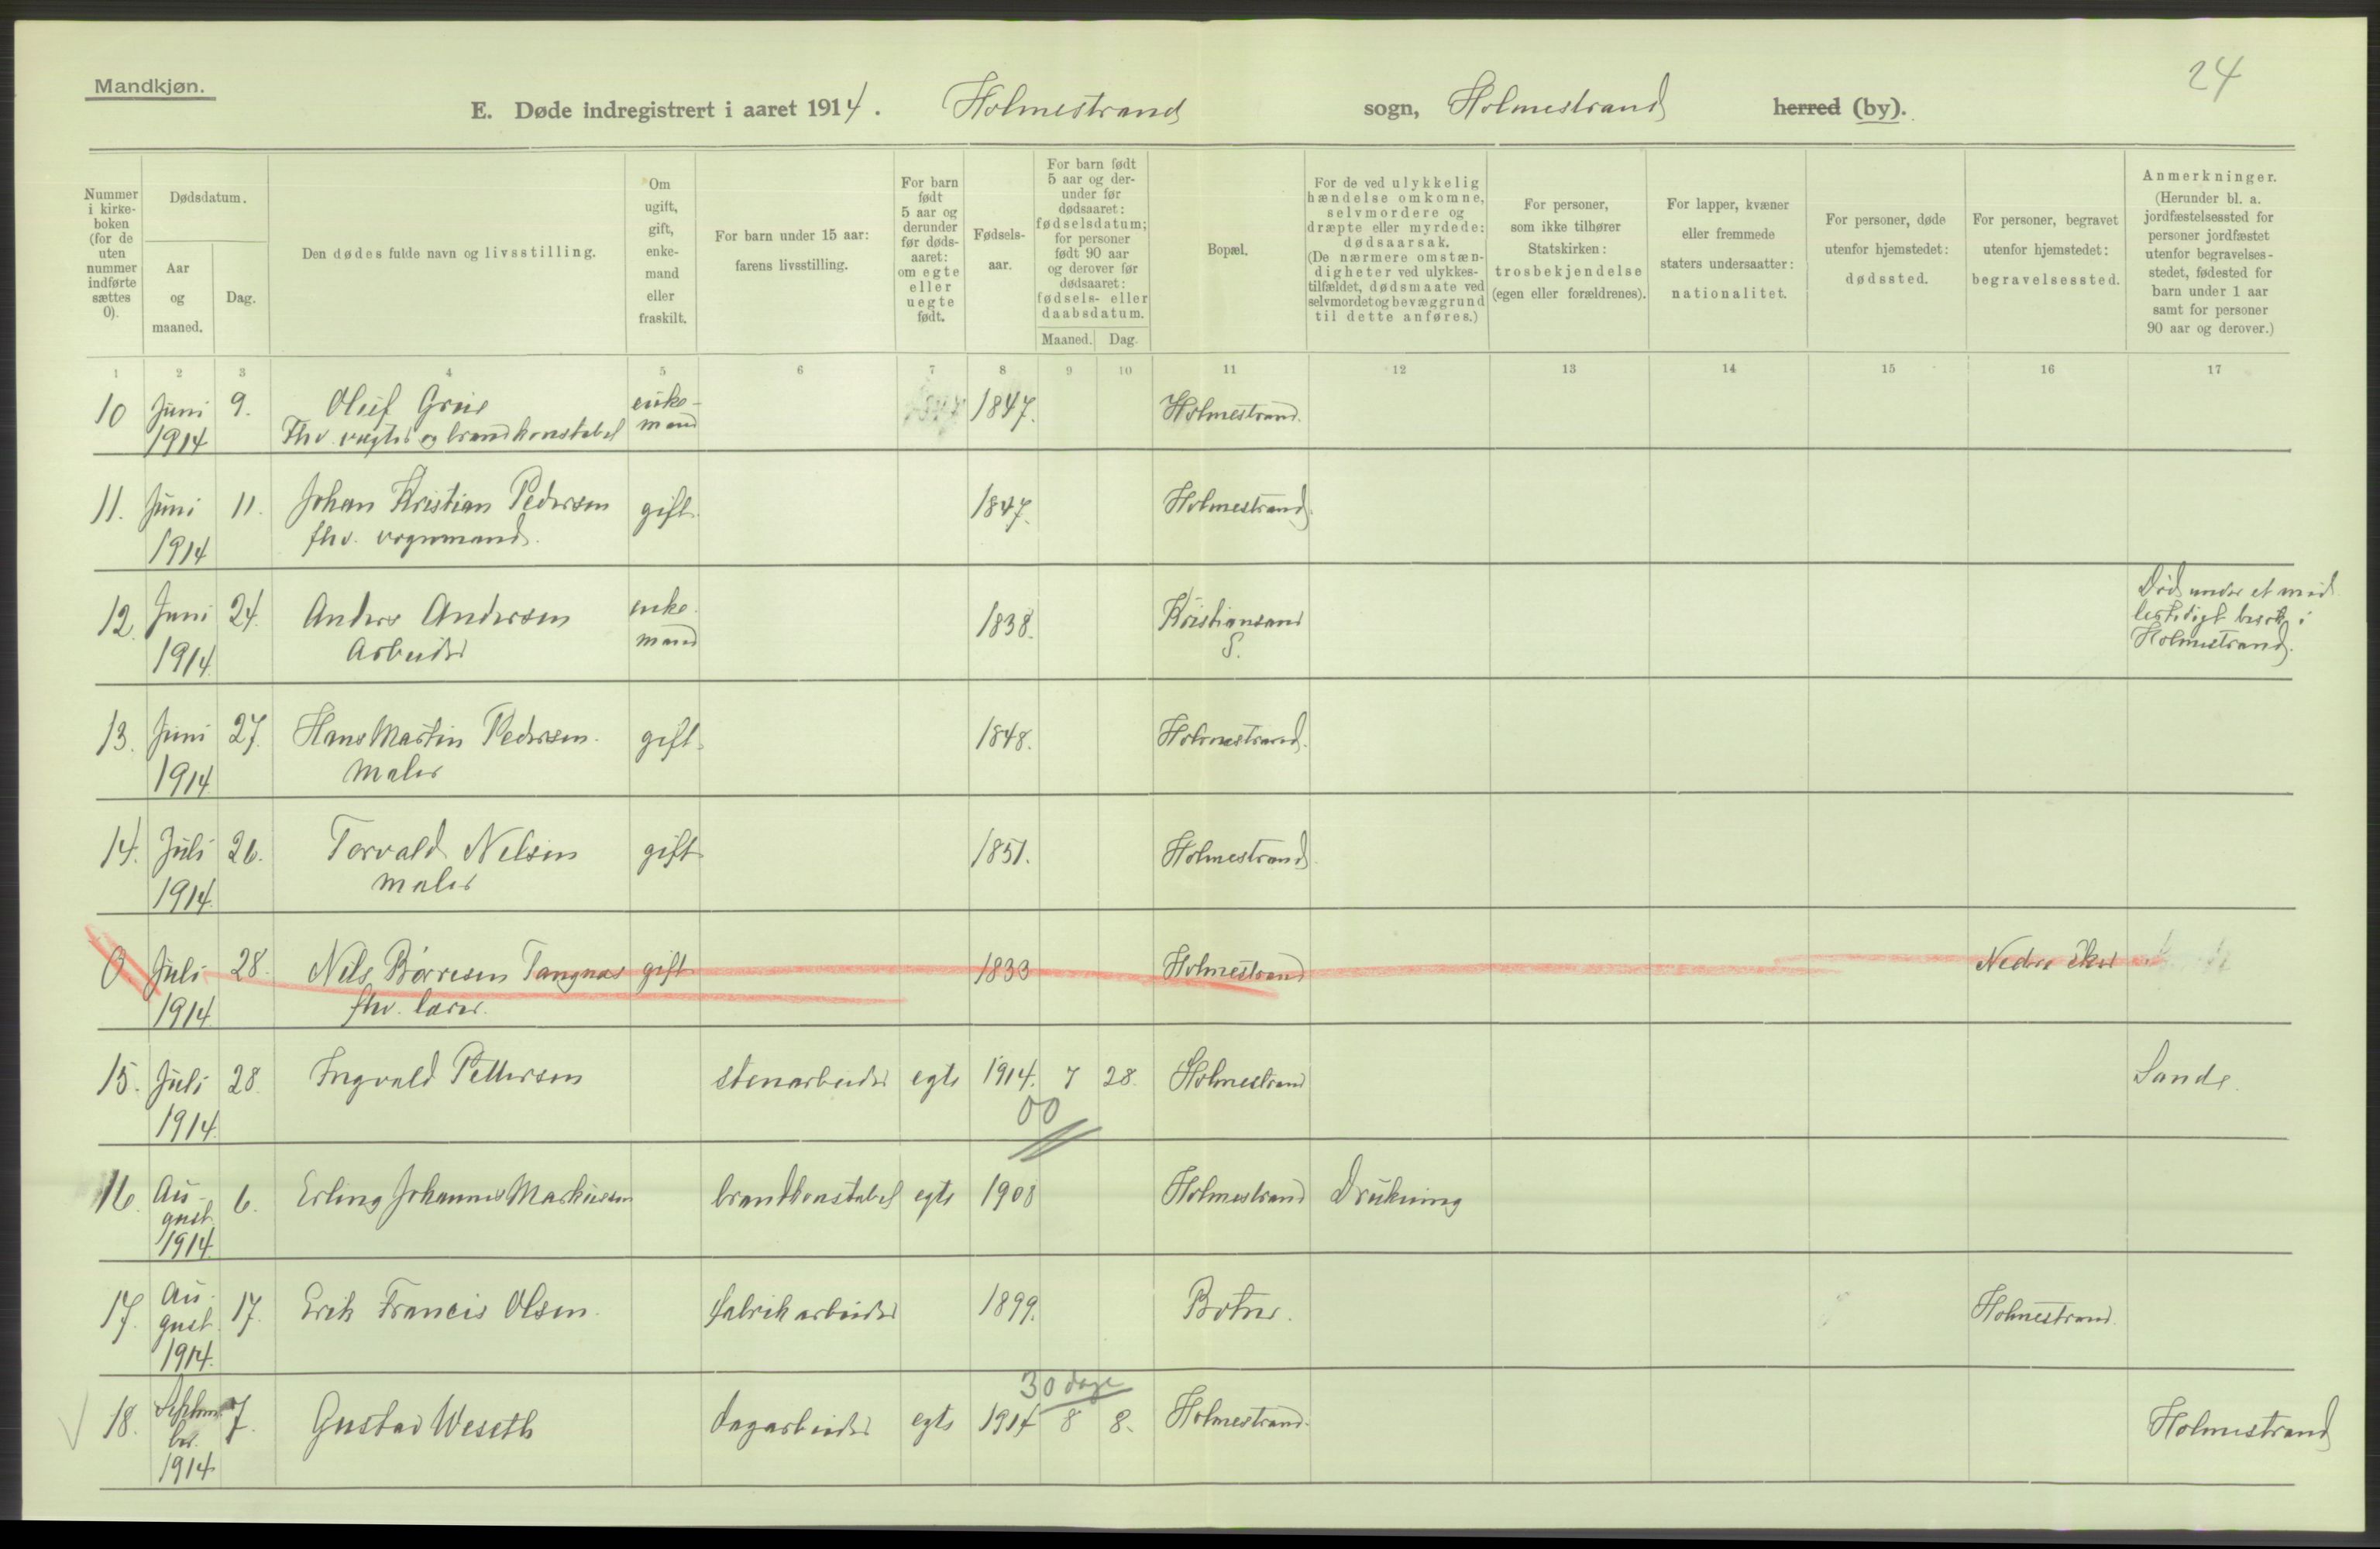 24
Mandkjøn.
E. Døde indregistrert i aaret 1914. Holmestrand sogn, Holmestrand herred (by).
Nummer i kirke- boken (for de uten nummer indførte sættes 0).
Dødsdatum.
Aar og maaned.
Dag.
Den dødes fulde navn og livsstilling.
Om ugift, gift, enke- mand eller fraskilt.
For barn under 15 aar: farens livsstilling.
For barn født 5 aar og derunder før døds- aaret: om egte eller uegte født.
Fødsels- aar.
For barn født 5 aar og der- under før dødsaaret: fødselsdatum; for personer født 90 aar og derover før dødsaaret: fødsels- eller daabsdatum.
Maaned. Dag.
Bopæl.
For de ved ulykkelig hændelse omkomne, selvmordere og dræpte eller myrdede: dødsaarsak. (De nærmere omstæn- digheter ved ulykkes- tilfældet, dødsmaate ved selvmordet og bevæggrund til dette anføres.)
For personer, som ikke tilhører Statskirken: trosbekjendelse (egen eller forældrenes).
For lapper, kvæner eller fremmede staters undersaatter: nationalitet.
For personer, døde utenfor hjemstedet: dødssted.
For personer, begravet utenfor hjemstedet: begravelsessted.
Anmerkninger. (Herunder bl. a. jordfæstelsessted for personer jordfæstet utenfor begravelses- stedet, fødested for barn under 1 aar samt for personer 90 aar og derover.)
1 2 3 4 5 6 7 8 9 10 11 12 13 14 15 16 17
10 Juni 9. Oluf enke- 1847. Holmestrand.
1914 Fhv. vægter og brandkonstabel mand
11. Juni 11. Johan Kristian Pedersen gift. 1847. Holmestrand.
1914 fhv. vognmand.
12. Juni 24. Anders Andersen enke- 1838. Kristiansand Død under et mid-
1914. Arbeider mand S. lertidigt besøk i
Holmestrand.
13. Juni 27. Hans Martin Pedersen. gift. 1848. Holmestrand.
1914. Maler
14. Juli 26. Torvald Nelsen gift 1851. Holmestrand.
1914. maler
0. Juli 28. Nils Børresen Tangnæs gift 1833 Holmestrand Nedre Eker
1914. fhv. lærer.
15. Juli 28. Ingvald Pettersen stenarbeider egte 1914. 7 28. Holmestrand Sande.
1914. 00
16. Au- 6. Erling Johannes Markussen brandkonstabel egte 1908 Holmestrand Drukning
gust
1914.
17. Au- 17. Erik Francis Olsen. fabrikarbeider 1899. Botne. Holmestrand.
gust.
1914.
30 dage
18. Septem- 7. Gustav Weseth dagarbeider egte 1914 8 8. Holmestrand. Holmestrand
ber.
1914